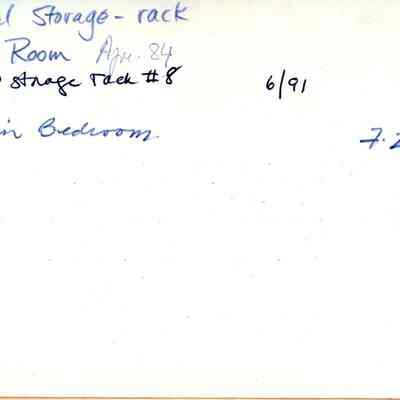 l Storage - rack
Room Apr. 84
storage rack #8 6/91
in Bedroom. 7.2